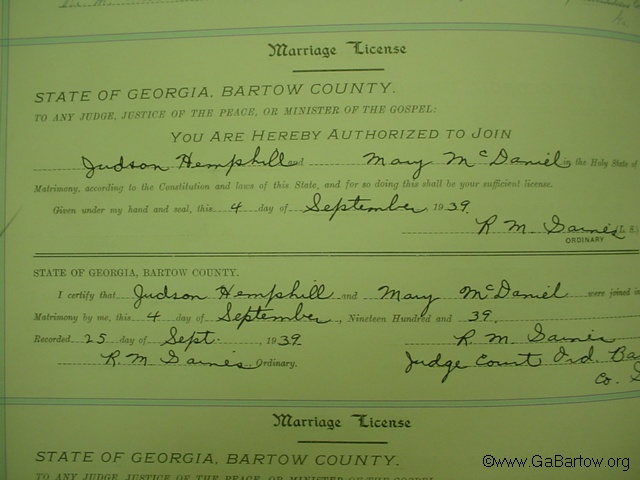 Marriage License
STATE OF GEORGIA, BARTOW COUNTY.
TO ANY JUDGE, JUSTICE OF THE PEACE, OR MINISTER OF THE GOSPEL:
YOU ARE HEREBY AUTHORIZED TO JOIN
Judson Hemphill and Mary McDaniel in the Holy State of
Matrimony, according to the Constitution and laws of this State, and for so doing this shall be your sufficient license.
Given under my hand and seal, this 4 day of September, 1939.
R. M. Gaines (L. S.)
ORDINARY
STATE OF GEORGIA, BARTOW COUNTY.
I certify that Judson Hemphill and Mary McDaniel were joined in
Matrimony by me, this 4 day of September, Nineteen Hundred and 39.
Recorded 25 day of Sept. , 1939. R. M. Gaines
R. M. Gaines Ordinary. Judge Court Ord. Ba
Co.
Marriage License
STATE OF GEORGIA, BARTOW COUNTY.
TO ANY JUDGE, JUSTICE OF THE PEACE, OR MINISTER OF THE GOSPEL:
©www.GaBartow.org